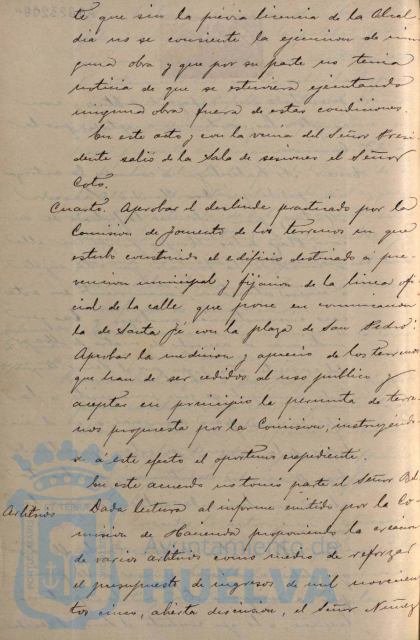 te que sin la previa licencia de la Alcal
dia no se consiente la ejecucion de nin
guna obra y que por su parte no tenia
noticia de que se estuviera ejecutando
ninguna obra fuera de estas condiciones.
En este acto y con la venia del Señor Presi
dente salió de la Sala de sesiones el Señor
Coto.
Cuarto. Aprobar el deslinde practicado por la
Comision de Fomento de los terrenos en que
estubo construido el edificio destinado á pre
vencion municipal y fijacion de la linea ofi
cial de la calle que pone en comunicacion
la de Santa Fé con la plaza de San Pedro.
Aprobar la medicion y aprecio de los terrenos
que han de ser cedidos al uso publico y
aceptar en principio la permuta de terre
nos propuesta por la Comision, instruyendo
se á este efecto el oportuno expediente.
En este acuerdo no tomó parte el Señor
Arbitrios
Dada lectura al informe emitido por la Co
mision de Hacienda proponiendo la creacion
de varios arbitrios como medio de reforzar
el presupuesto de ingresos de mil novecien
tos cinco, abierta discusion, el Señor Nuñez
Ayuntamiento de
HUELVA